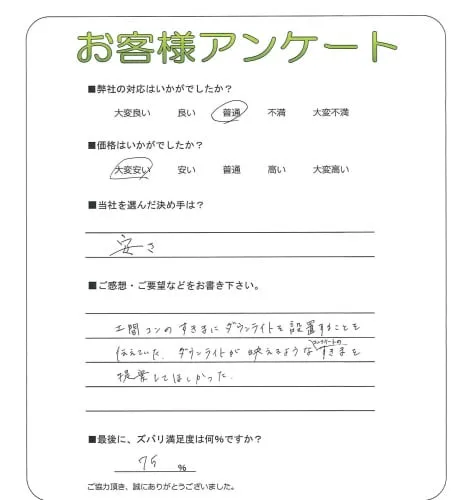 お客様アンケート
■弊社の対応はいかがでしたか？
大変良い 良い 普通 不満 大変不満
■価格はいかがでしたか？
大変安い 安い 普通 高い 大変高い
■当社を選んだ決め手は？
安さ
■ご感想・ご要望などをお書き下さい。
土間コンのすきまにダウンライトを設置することを
コンクリートの
伝えていた。ダウンライトが映えるようなすきまを
提案してほしかった.
■最後に、ズバリ満足度は何％ですか？
75 ％
ご協力頂き、誠にありがとうございました。